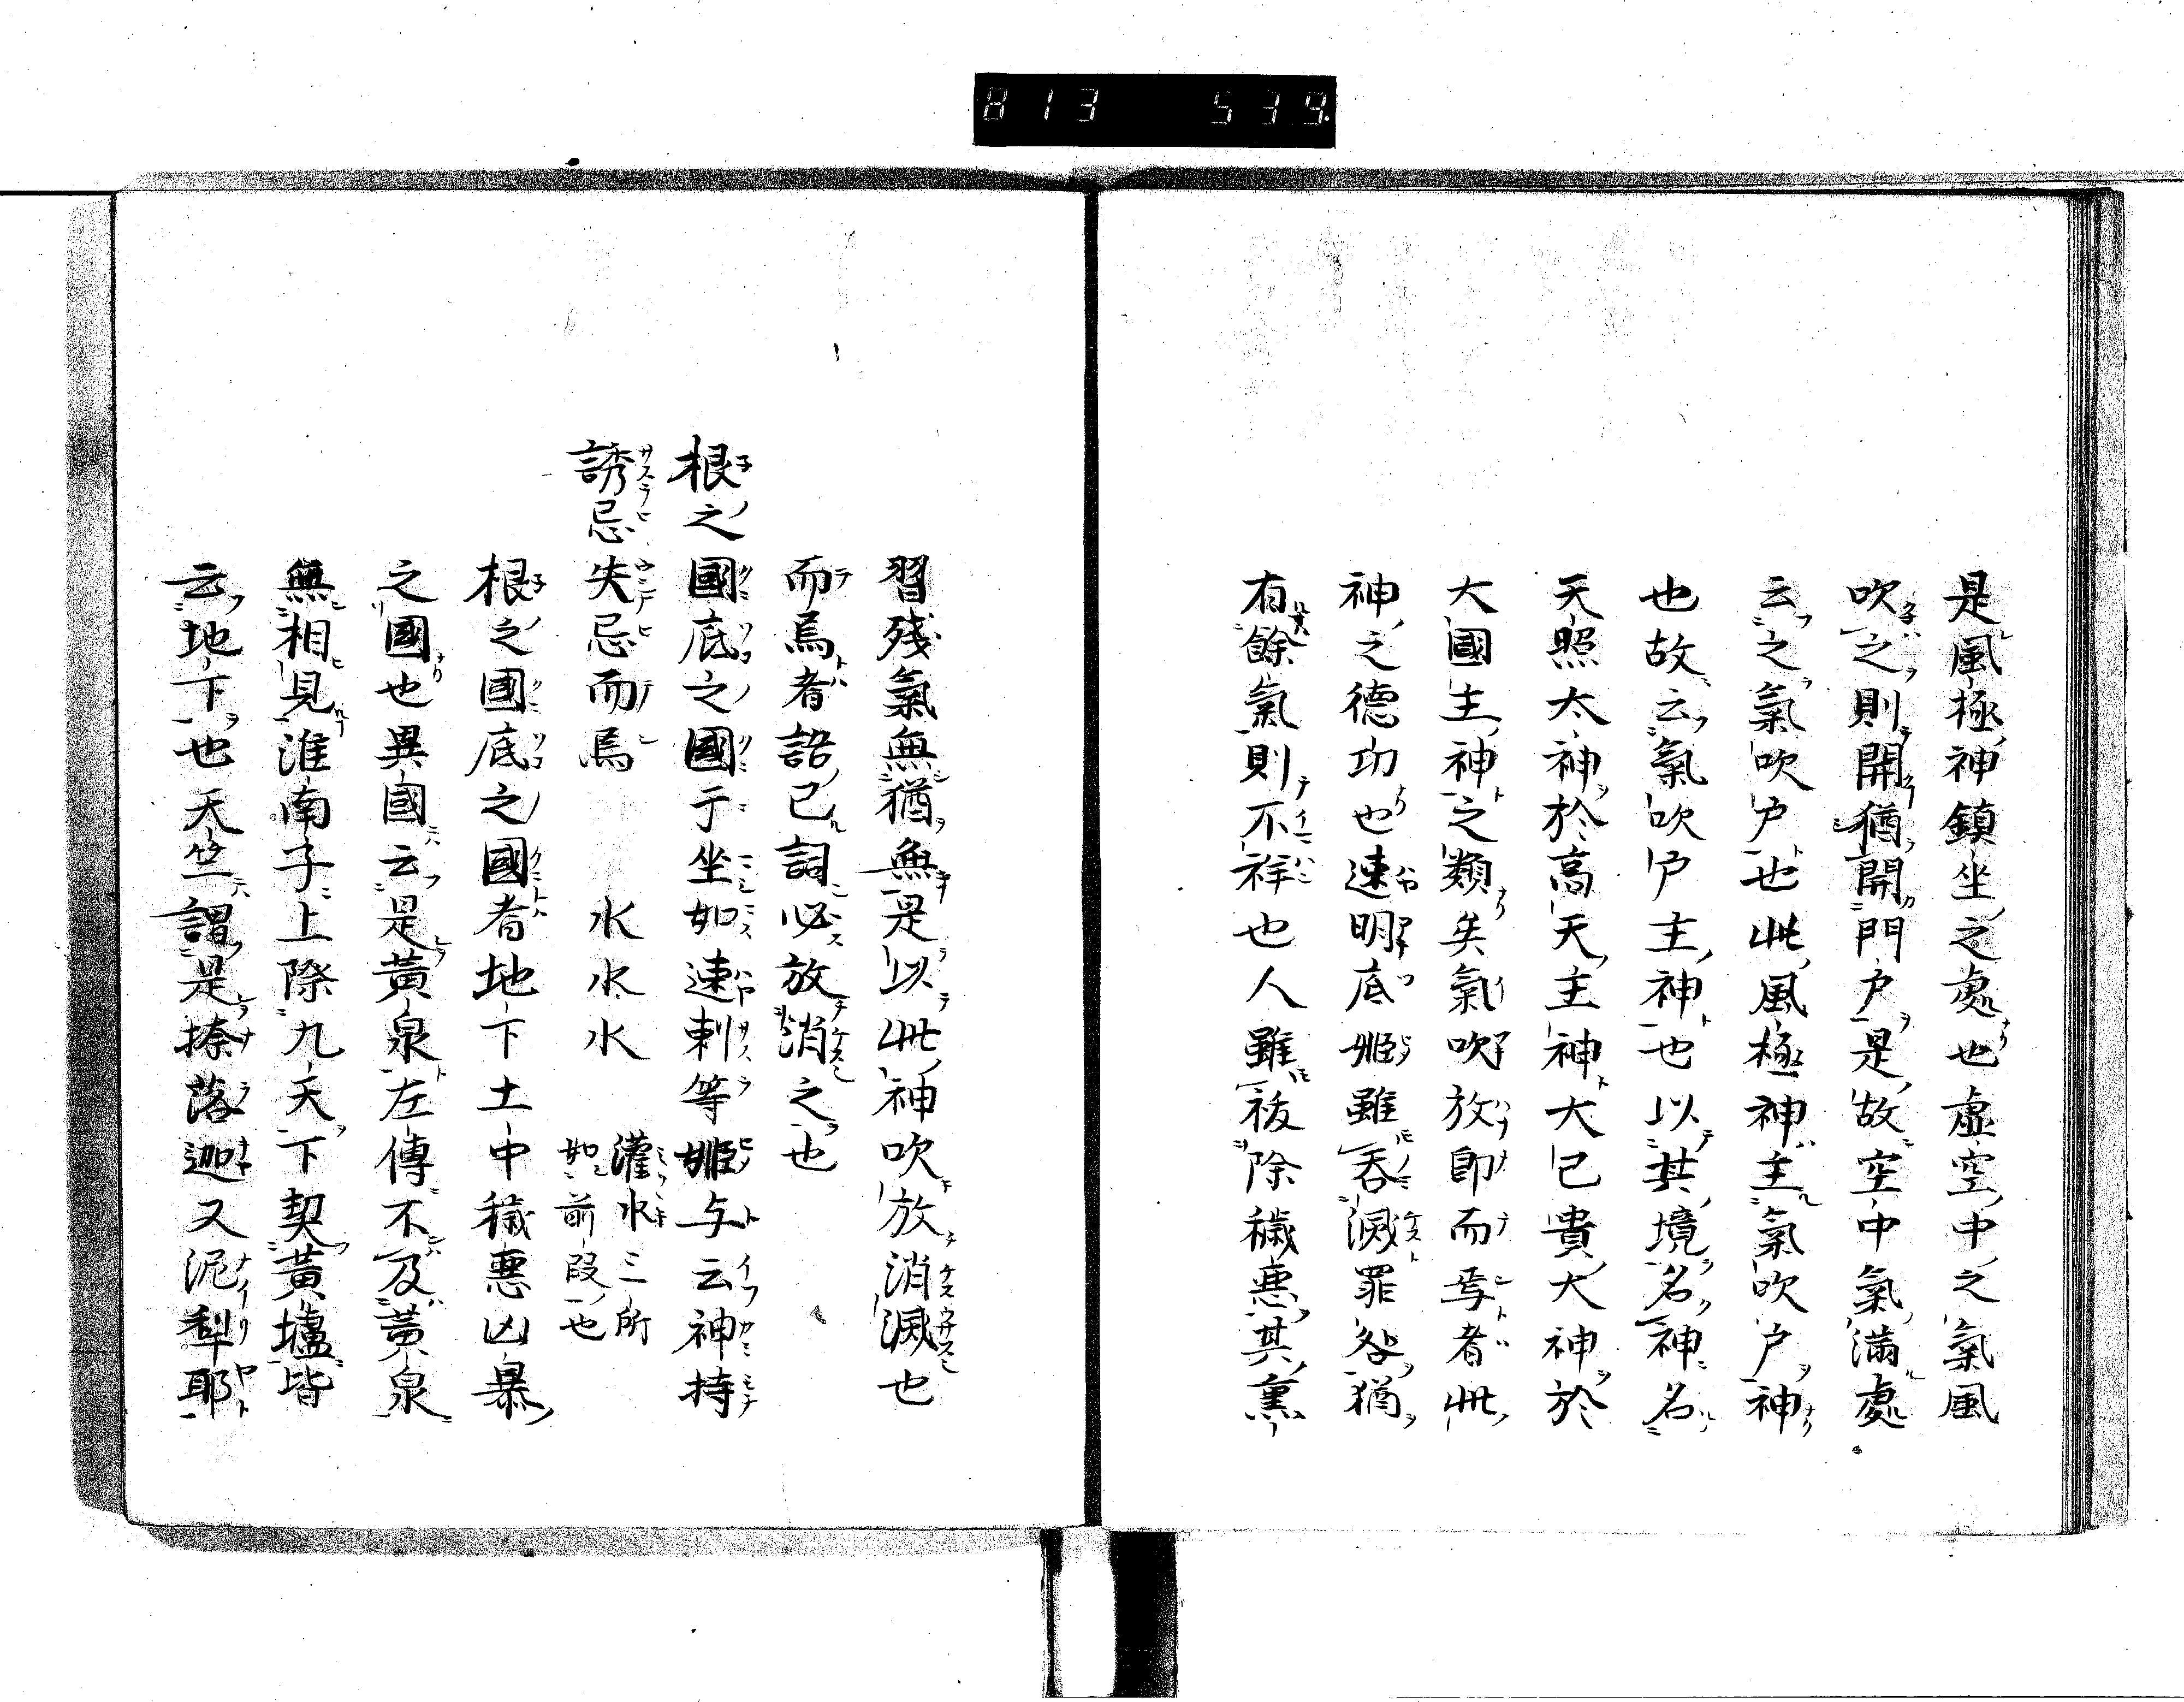 813 539
是風極神鎮坐之處也虛空中之氣風
吹之則開猶開門戶是故空中氣滿處
云之氣吹戶也此風極神主氣吹戶神
也故云氣吹戶主神也以其境名神名
天照太神於高天主神大已貴大神於
大國主神之類矣氣吹放即而焉者此
神之德功也速明底姬雖呑滅罪咎猶
有餘氣則不祥也人雖祓除穢惡其熏
習殘氣無猶無是以此神吹放消滅也
而焉者語已詞必放消之也
根之國底之國于坐如速刺等姬与云神持
誘忌失忌而焉 水水水 灌水三所
如前段也
根之國底之國者地下土中穢惡凶暴
之國也異國云是黃泉左傳不及黃泉
無相見淮南子上際九天下契黃壚皆
云地下也天竺謂是捺落迦又泥犁耶